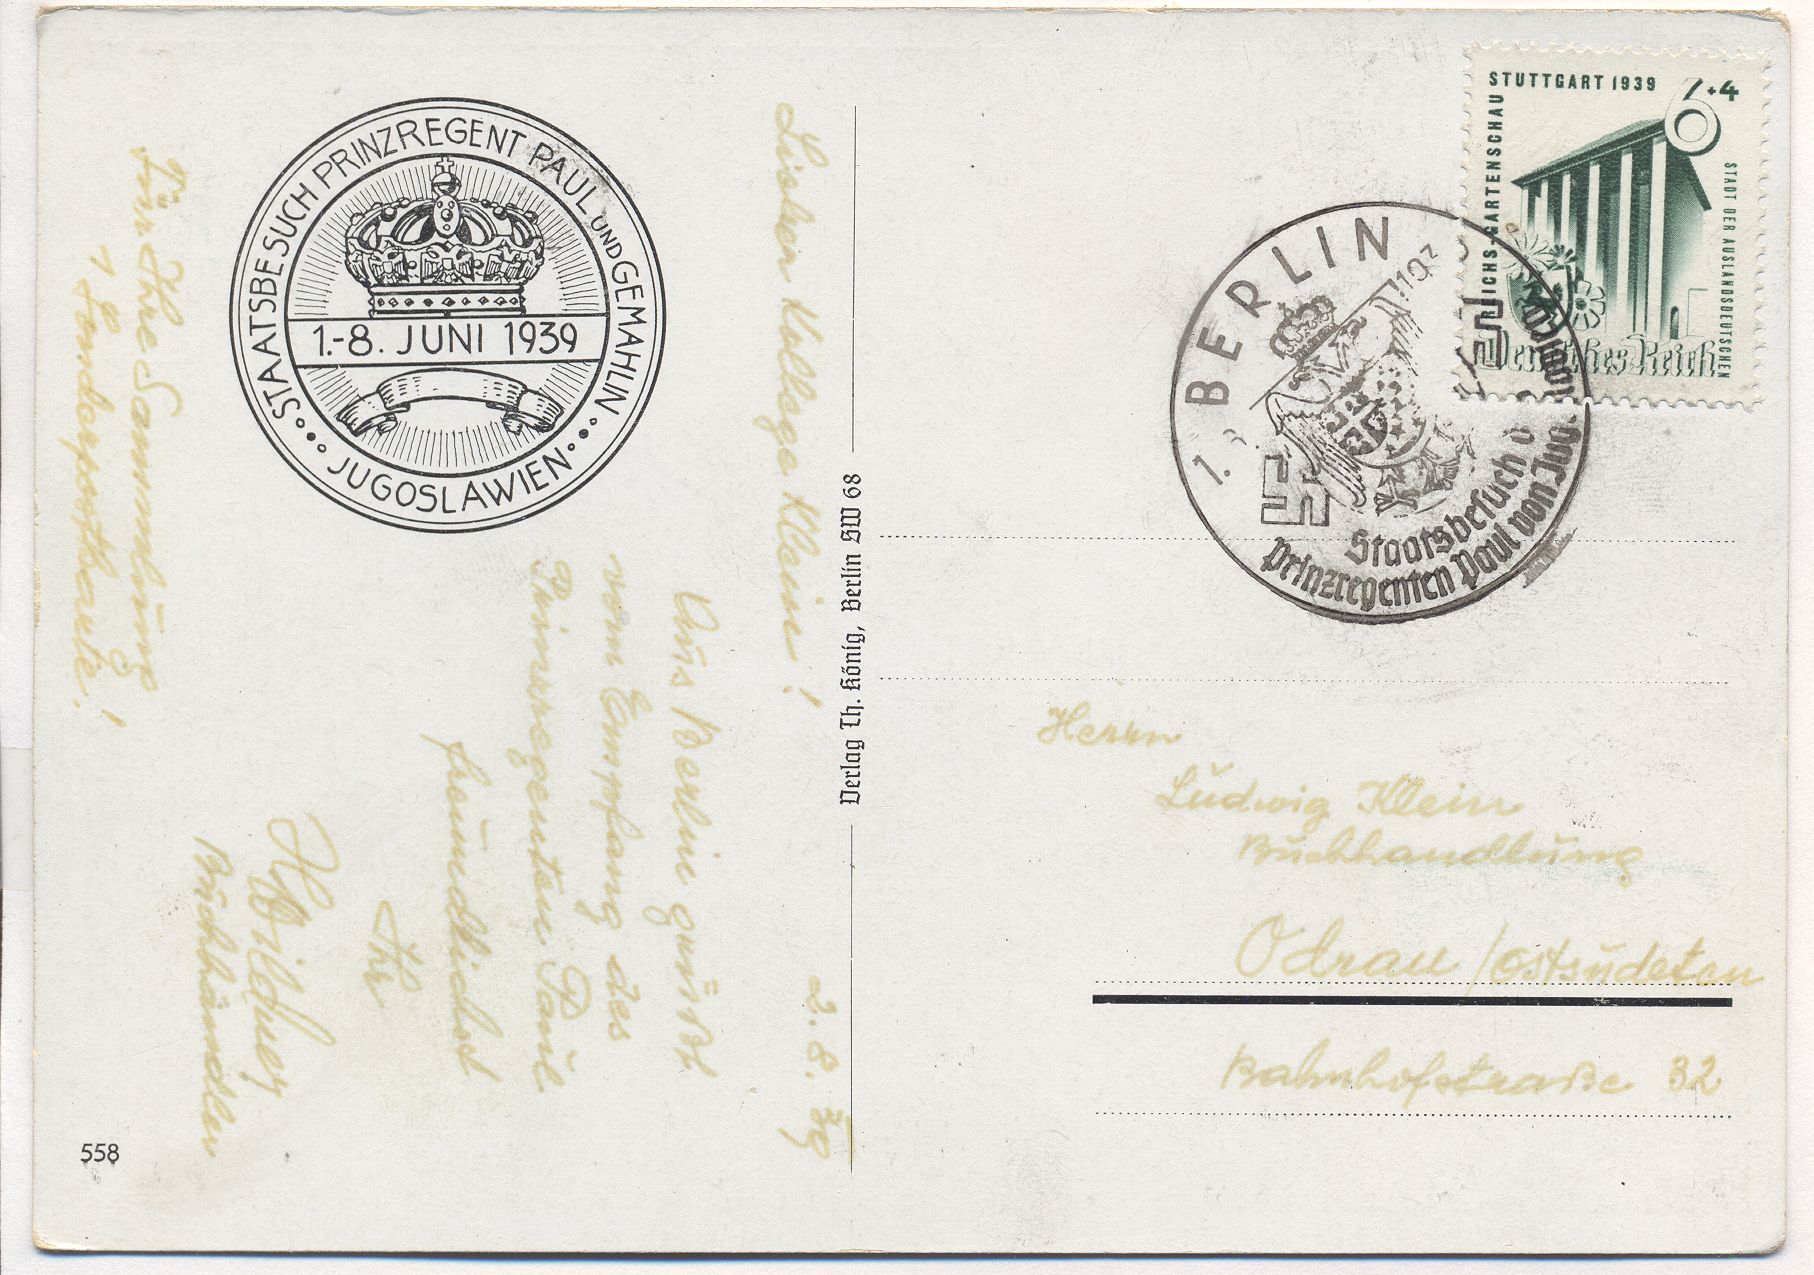 STAATSBESUCH PRINZREGENT PAUL UND GEMAHLIN
1.-8. JUNI 1939
JUGOSLAWIEN
Lieber Kollege Klein!
2.8.39
Aus Berlin grüßt
vom Empfang des
Prinzregenten Paul
freundlichst
Ihr
Buchhändler
Für Ihre Sammlung
1 Sonderpostkarte!
558
Verlag Th. König, Berlin SW 68
STUTTGART 1939
6+4
REICHS-GARTENSCHAU
STADT DER AUSLANDSDEUTSCHEN
Deutsches Reich
BERLIN
1.
Staatsbesuch d
Prinzregenten Paul von Jug
Herrn
Ludwig Klein
Buchhandlung
Odrau / Ostsudeten
Bahnhofstraße 32